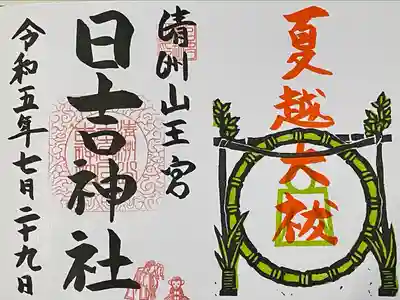 夏越大祓
清洲山王宮
日吉神社
令和五年七月二十九日